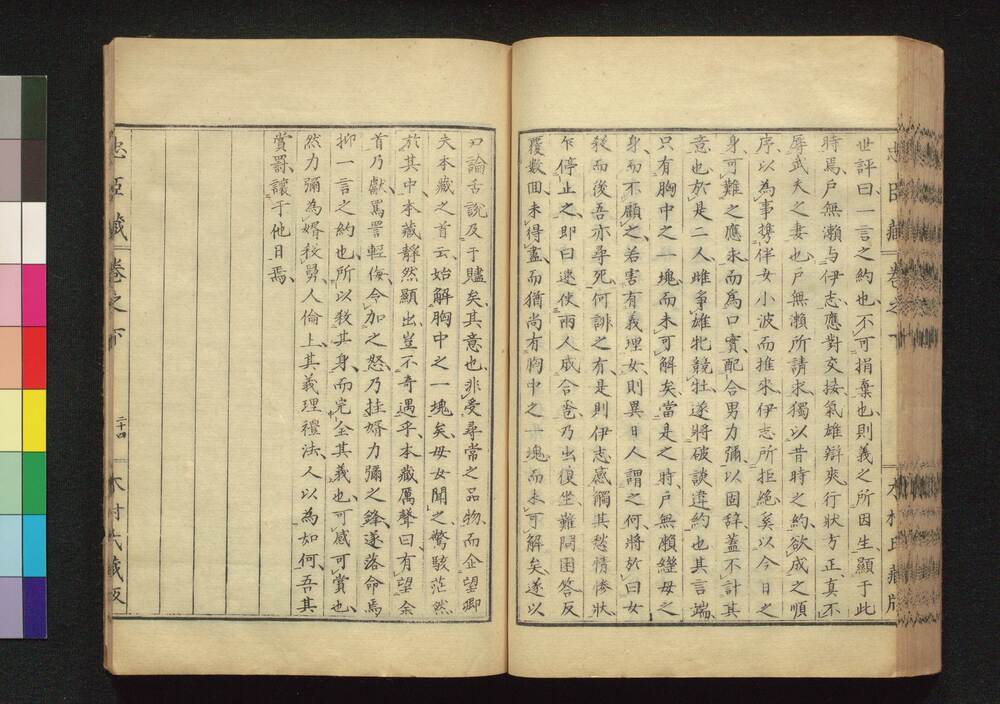 忠臣藏 卷之下
木村氏藏版
世評曰一言之約也不可捐棄也則義之所因生顯于此
時焉戶無瀨与伊志應對交接氣雄辯爽行狀方正真不
辱武夫之妻也戶無瀨所請求獨以昔時之約欲成之順
序以為事攜伴女小波而推來伊志所拒絕奚以今日之
身可難之應永而為口實配合男力彌以固辭蓋不計其
意也於是二人雌爭雄牝競牡遂將破談違約也其言端
只有胸中之一塊而未可解矣當是之時戶無瀨繼母之
身而不顧之若害有義理女則異日人謂之何將於曰女
從而後吾亦尋死何誹之有是則伊志感觸其愁情慘狀
乍停止之即曰速使兩人成合卺乃出復坐難問困答反
覆數回未得盡而猶尚有胸中之一塊而未可解矣遂以
刃論舌說及于贐矣其意也非受尋常之品物而企望卿
夫本藏之首云始解胸中之一塊矣母女聞之驚駭茫然
於其中本藏靜然顯出豈不奇遇乎本藏厲聲曰有望余
首乃獻罵詈輕侮令加之怒乃挂婿力彌之鋒遂落命焉
抑一言之約也所以殺其身而完全其義也可感可賞也
然力彌為婿殺舅人倫上其義理禮法人以為如何吾其
賞罰讓于他日焉
忠臣藏 卷之下
二十四
木村氏藏版